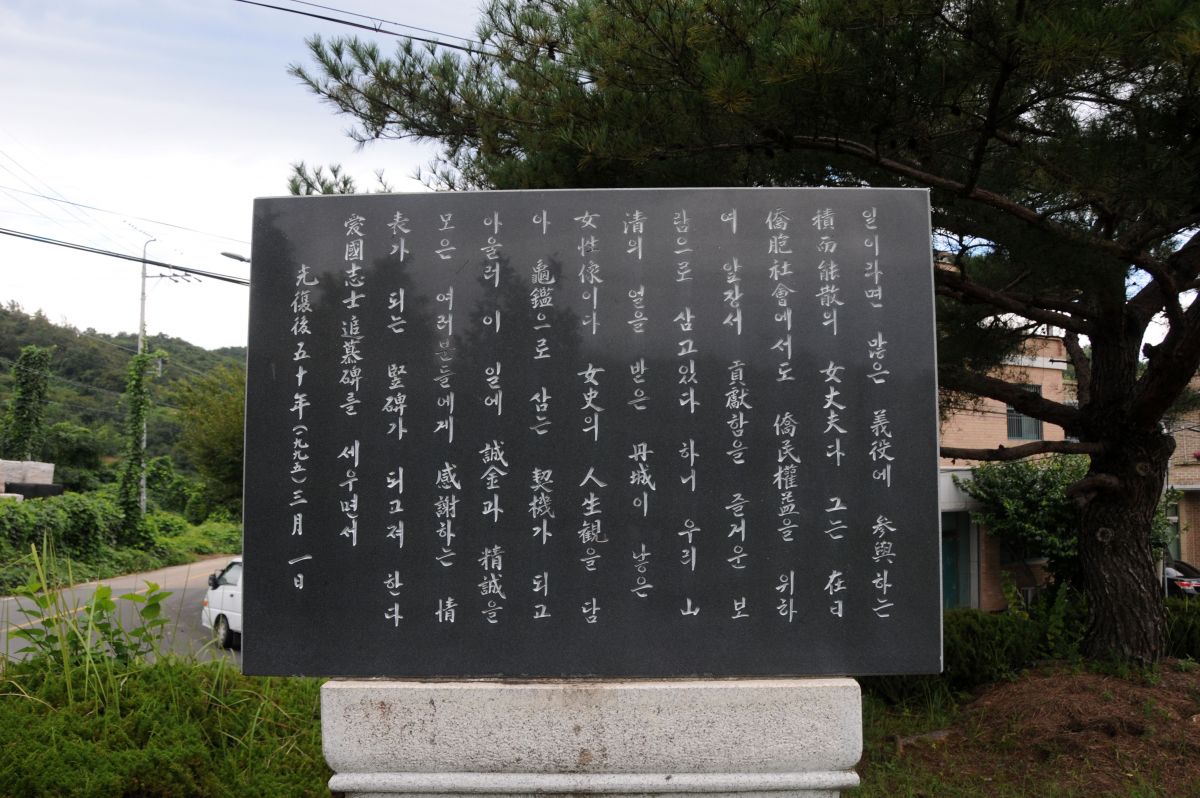 일이라면 많은 義役에 參與하는
積而能散의 女丈夫다 그는 在日
僑胞社會에서도 僑民權益을 위하
여 앞장서 貢獻함을 즐거운 보
람으로 삼고있다 하니 우리 山
淸의 얼을 받은 丹城이 낳은
女性像이다 女史의 人生観을 담
아 龜鑑으로 삼는 契機가 되고
아울러 이 일에 誠金과 精誠을
모은 여러분들에게 感謝하는 情
表가 되는 竪碑가 되고져 한다
愛國志士追慕碑를 세우면서
光復後五十年(一九九五)三月 一日